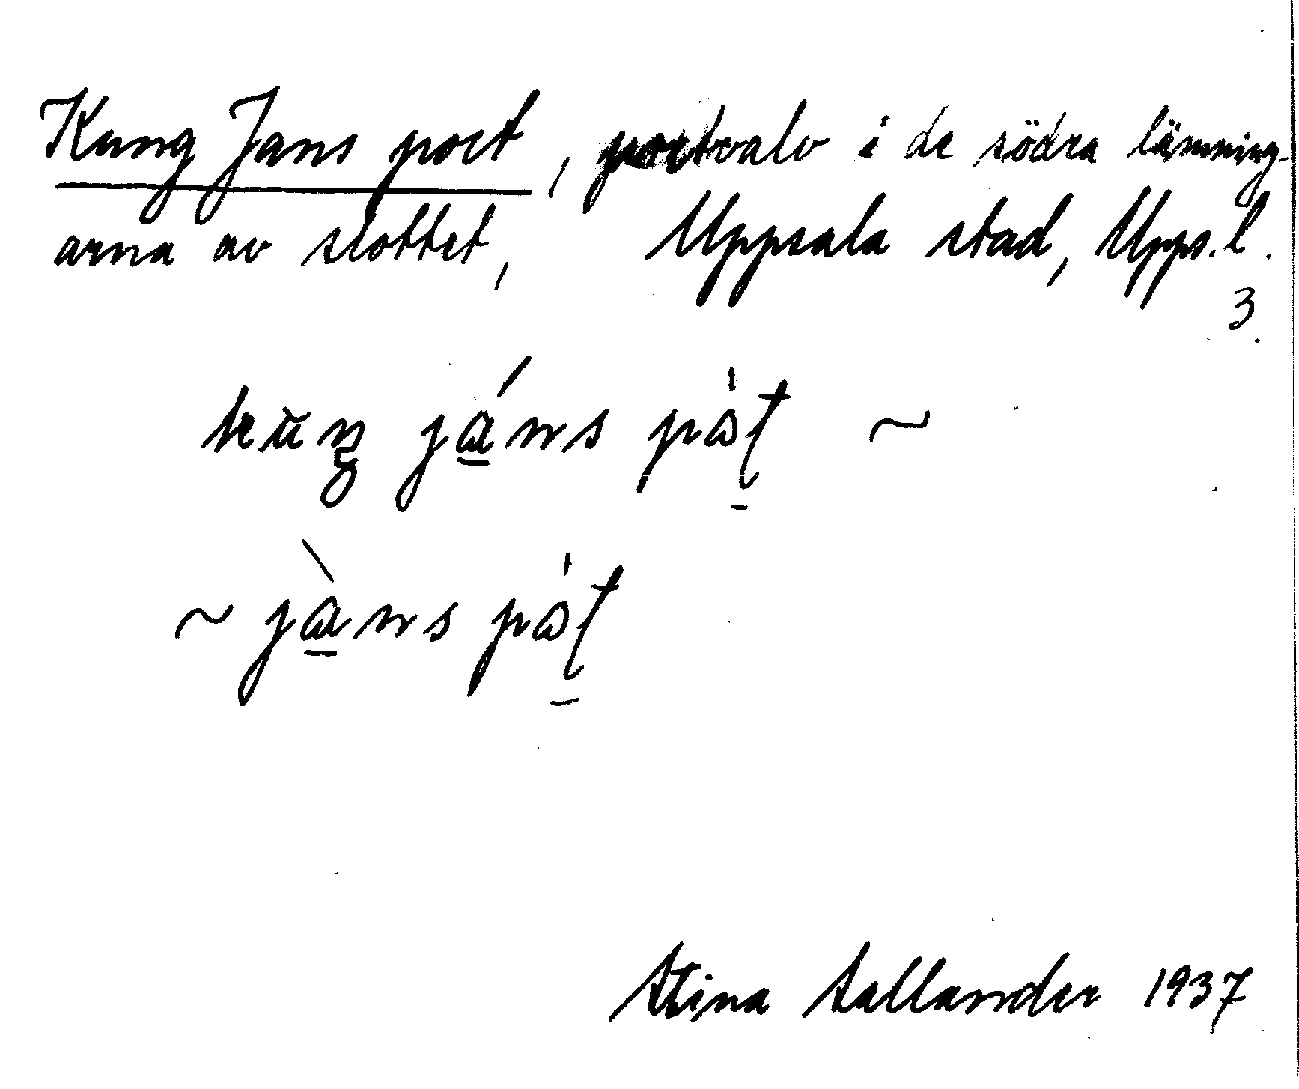 Kung Jans port, portvalv i de södra lämning-
arna av slottet, Uppsala stad, Upps. l.
3.
kŭŋ já̱ns pȧt̠ ~
~ jà̱ns pȧt̠
Stina Sallander 1937